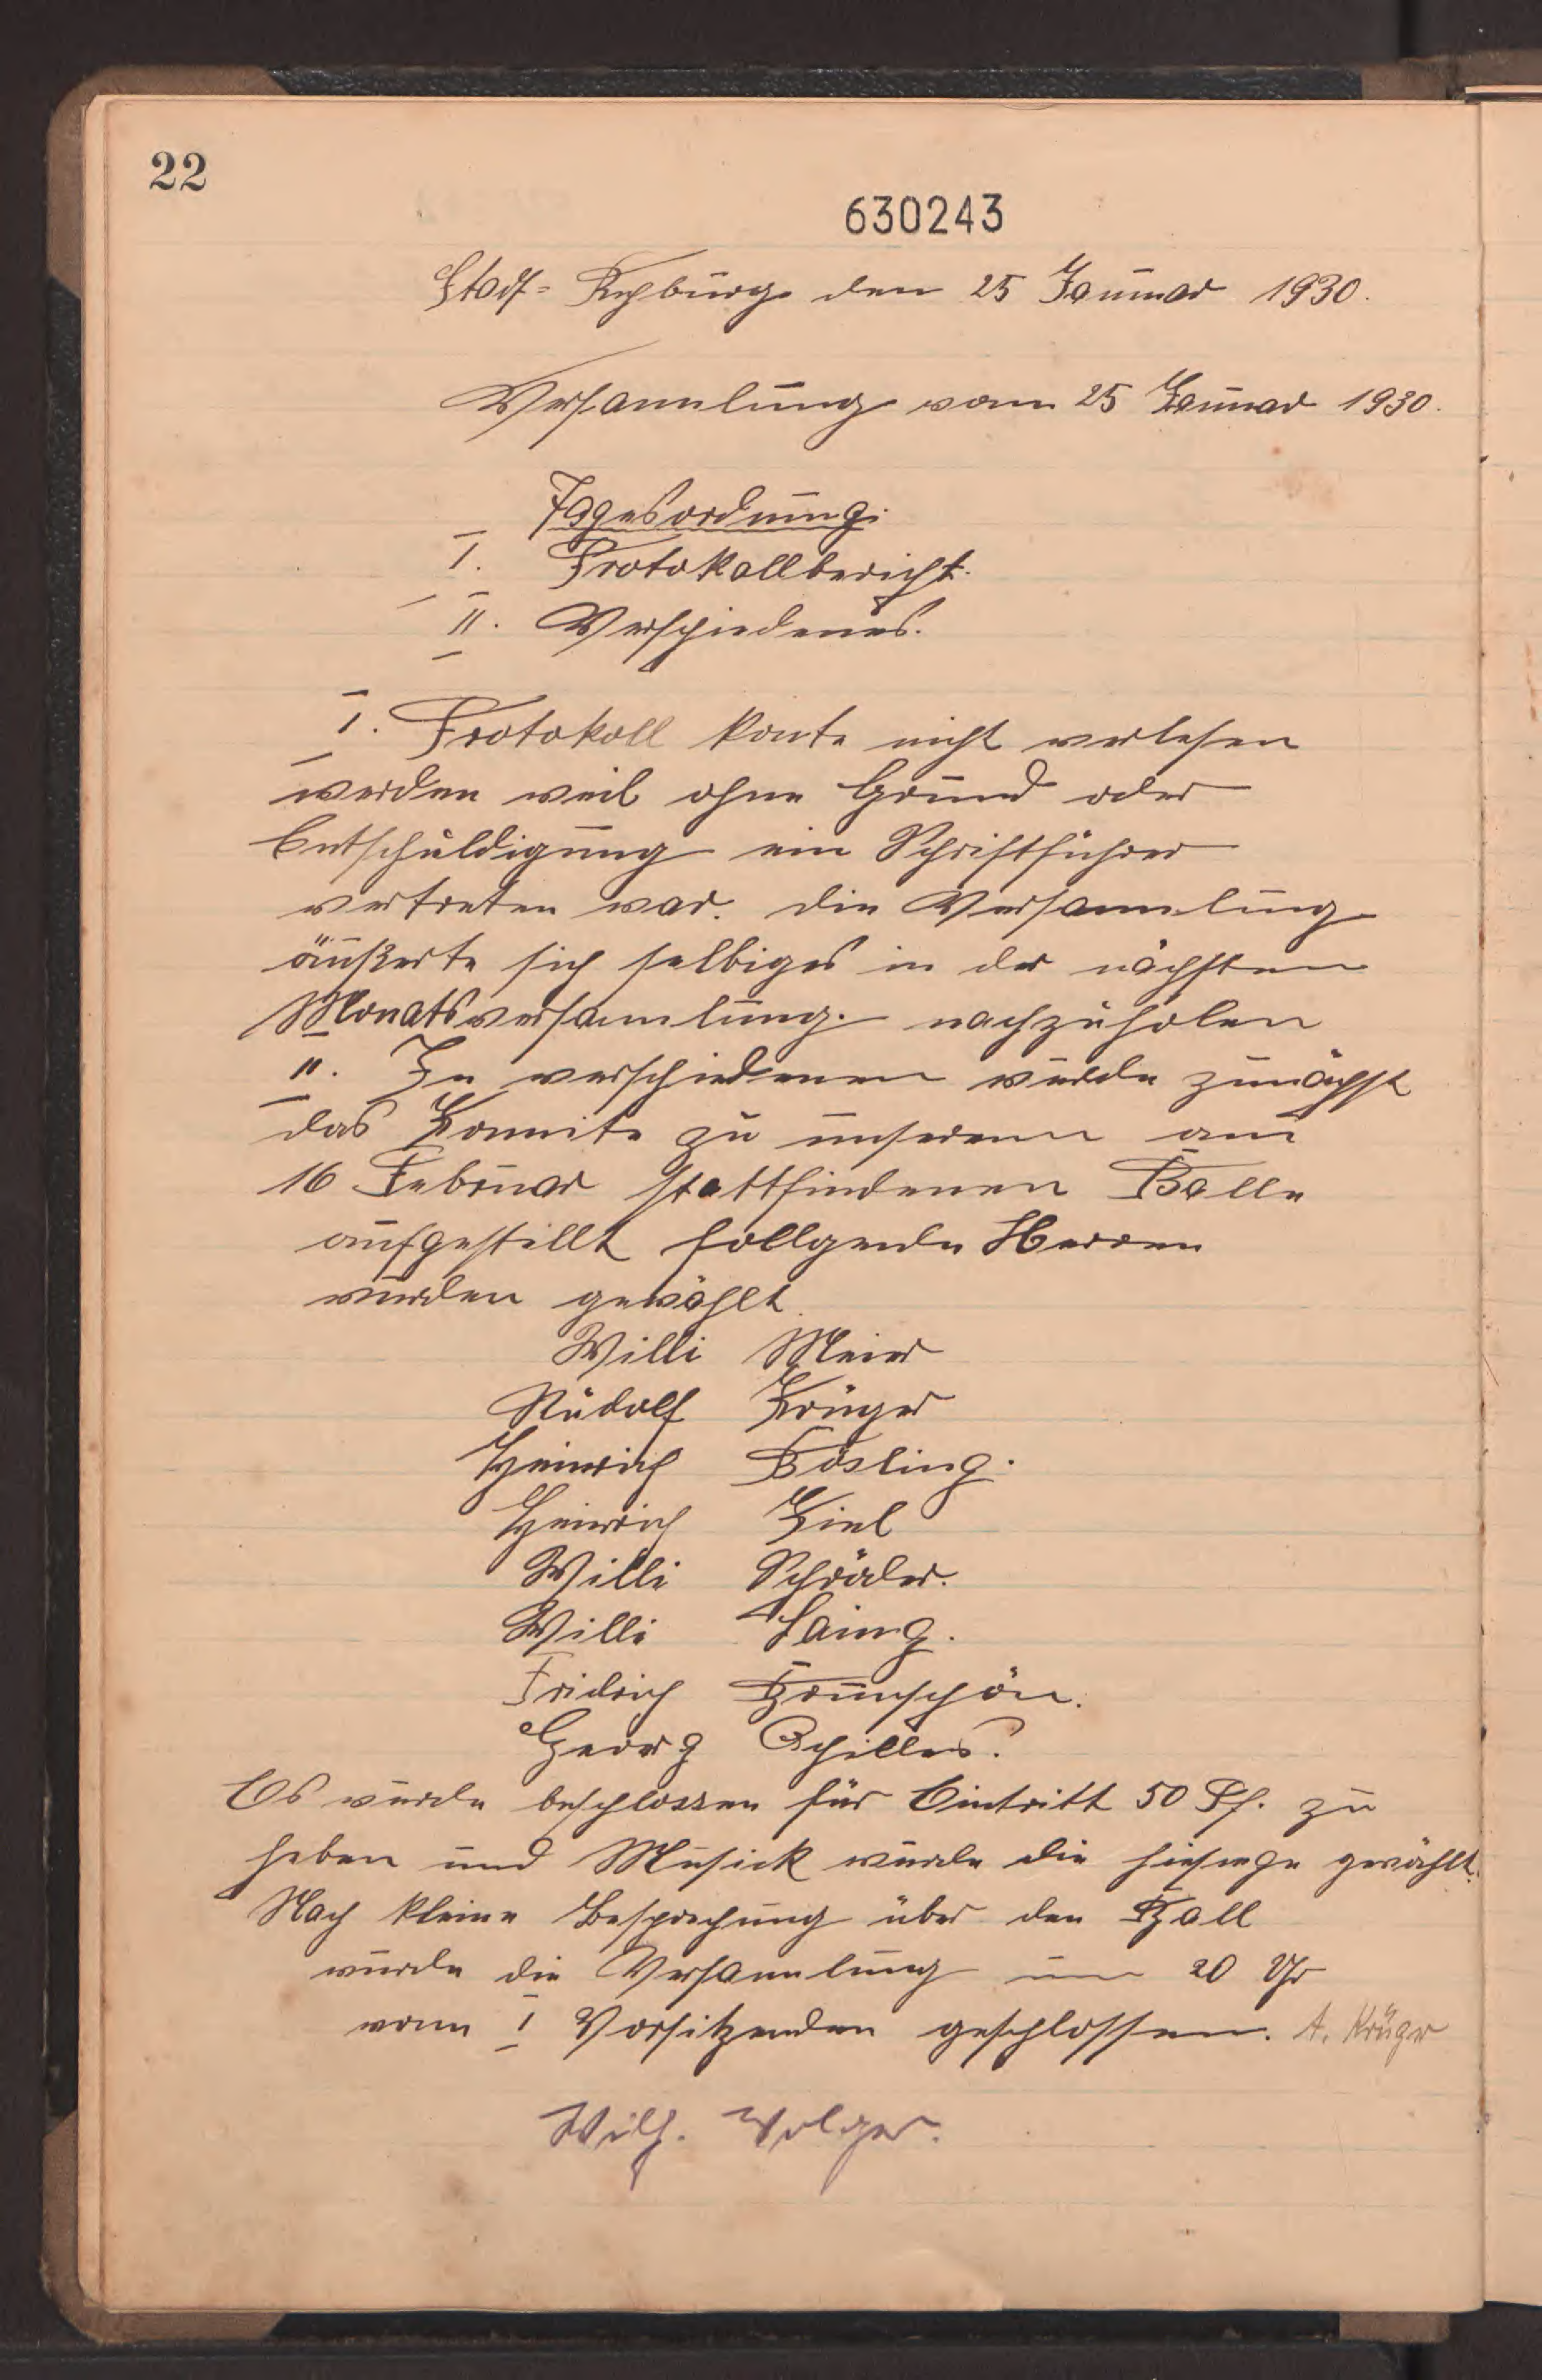 22
630243
Stadt=Rehburg den 25 Januar 1930.
Versammlung vom 25 Januar 1930.
Tagesordnung.
I. Protokollbericht.
II. Verschiedenes.
I. Protokoll konte nicht verlesen
werden weil ohne Grund oder
Entschuldigung ein Schriftführer
vertreten war. die Versammlung
äußerte sich selbiges in der nächsten
Monatsversammlung. nachzuholen
II. In verschiedenen wurde zunächst
das Kommite zu unserem am
16 Februar stattfindenen Balle
aufgestellt follgende Herren
wurden gewählt.
Willi Meier
Rudolf Krüger
Heinrich Bösling.
Heinrich Kiel
Willi Schröder.
Willi Laing.
Fridrich Brunschön.
Georg Achilles.
Es wurde beschlossen für Eintritt 50 Pf. zu
heben und Musick wurde die hiesige gewählt.
Nach kleine Besprechung über den Ball
wurde die Versammlung um 20 Uhr
vom I Vorsitzenden geschlossen. A. Krüger
Wilh. Volger.